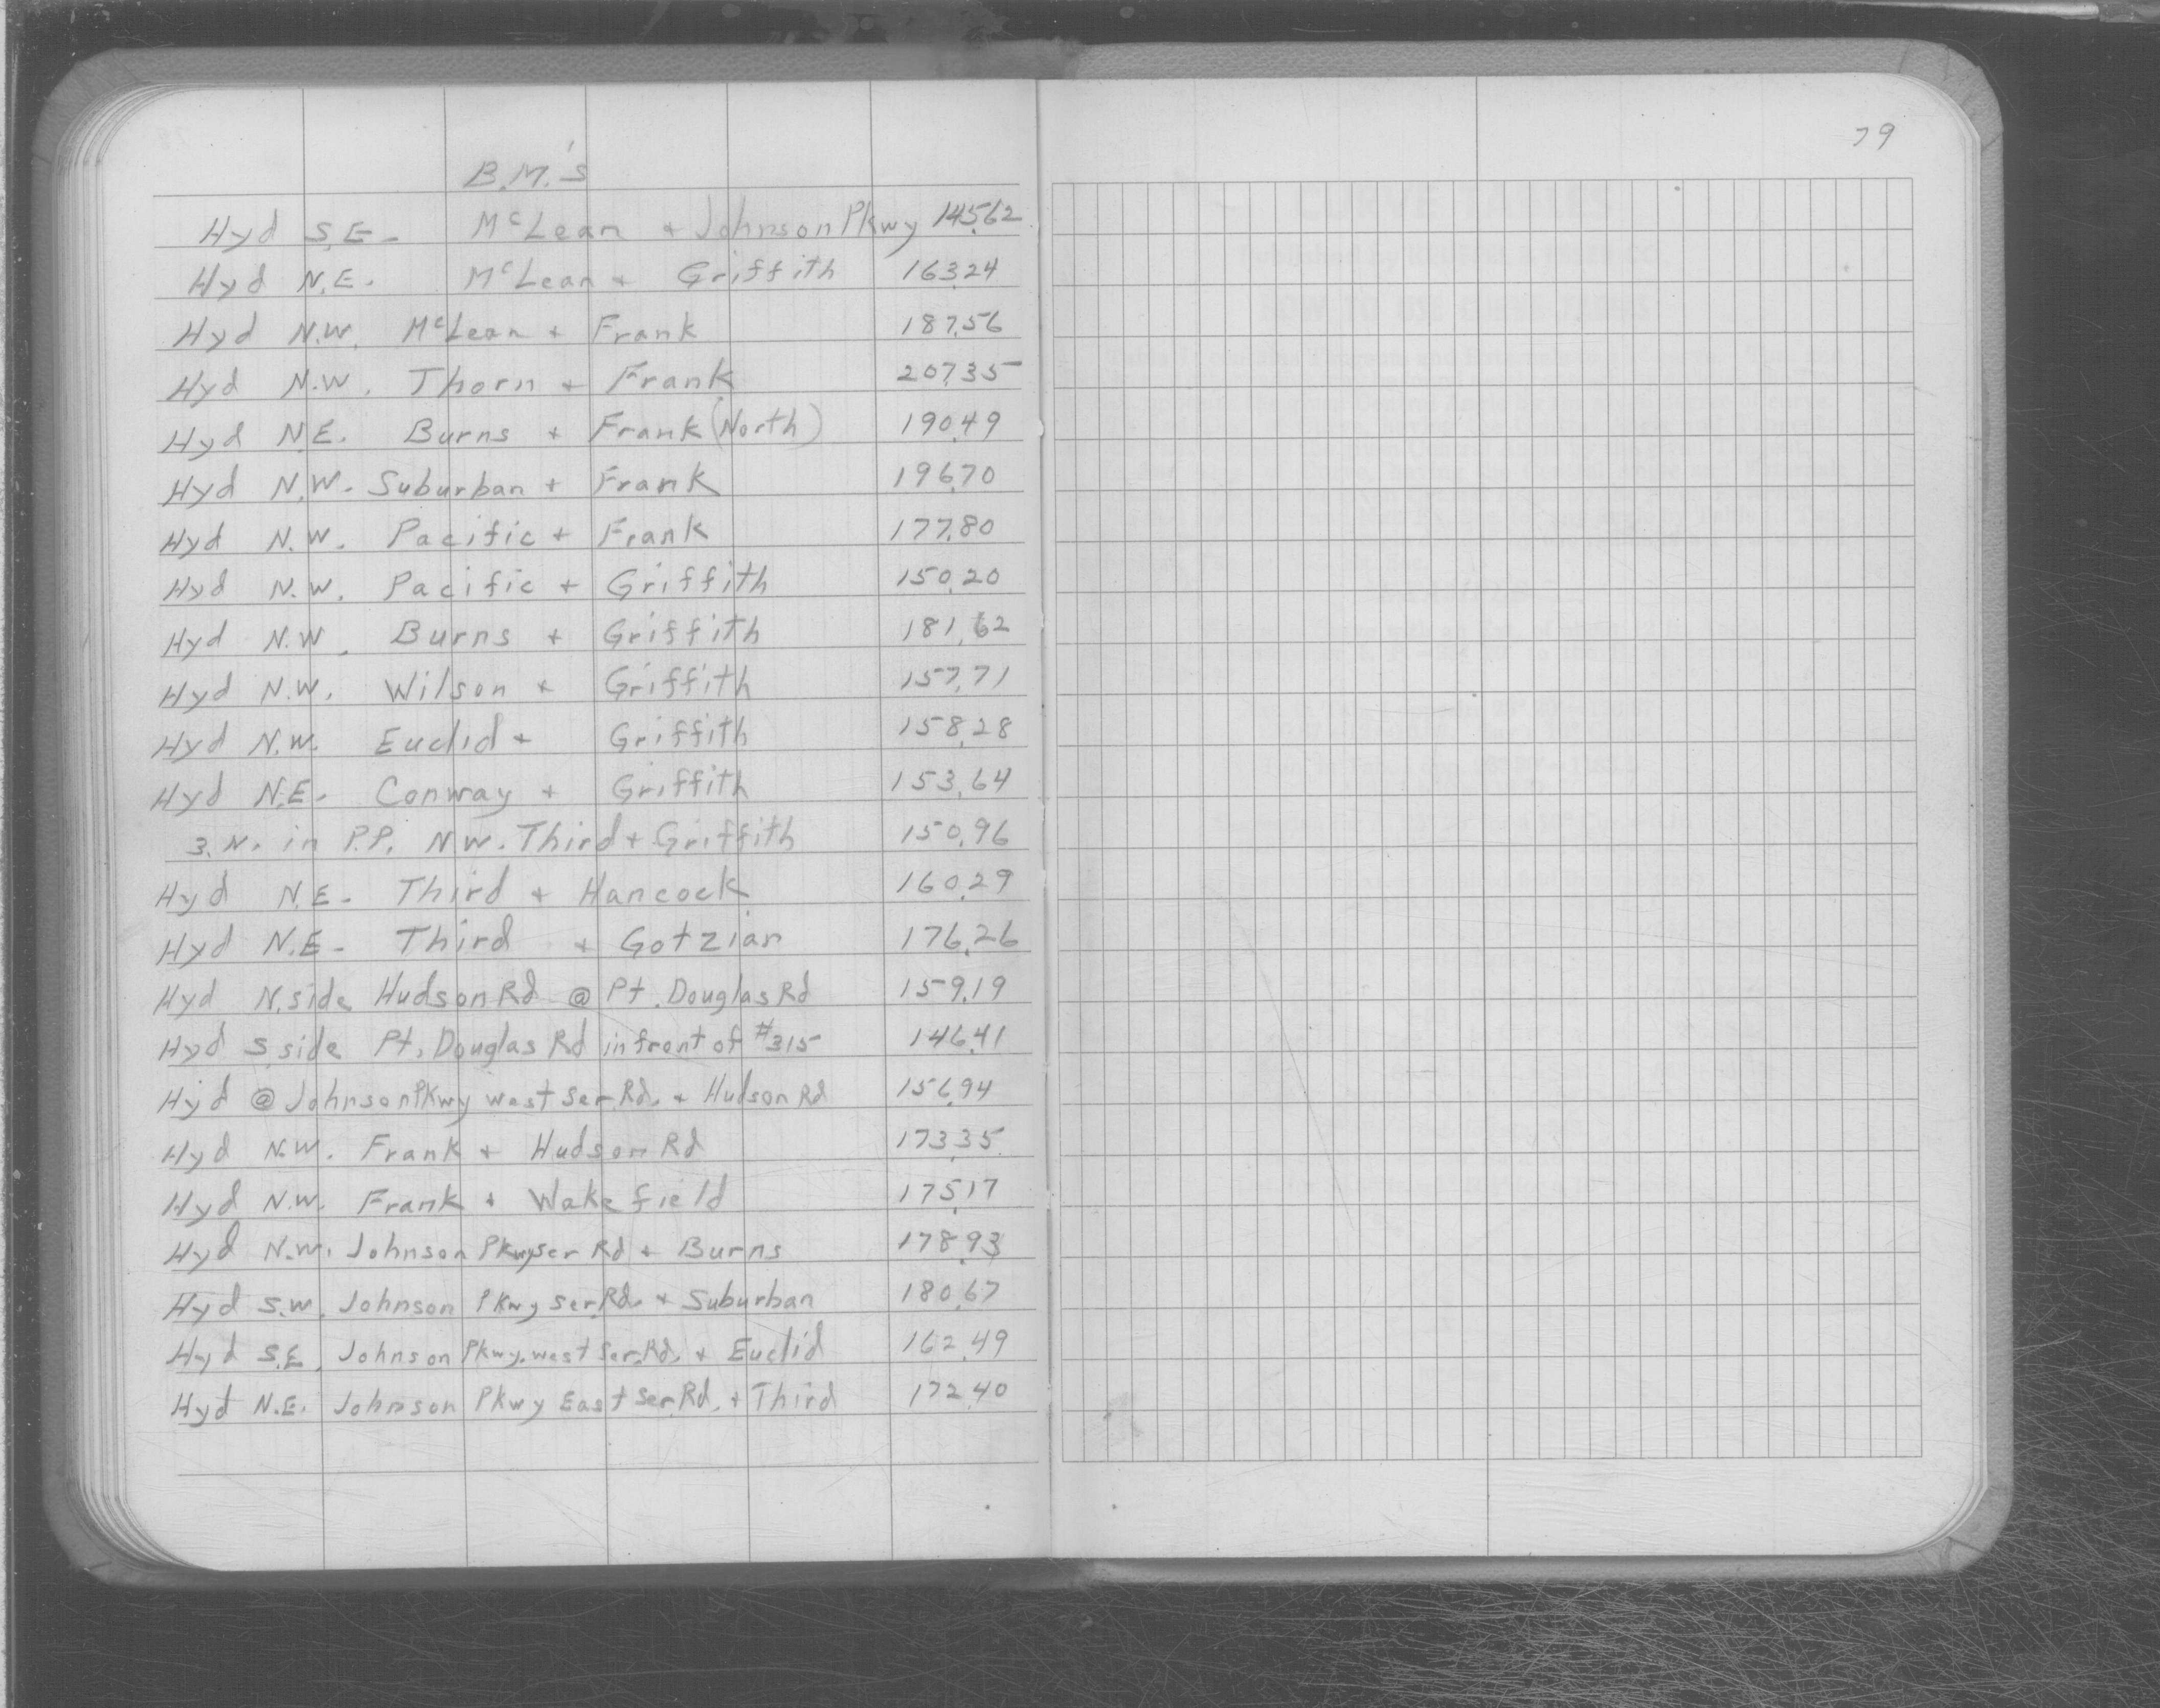 79
B.M.'s
Hyd S.E. - McLean + Johnson Pkwy 145.62
Hyd N.E. - McLean + Griffith 163.24
Hyd N.W. McLean + Frank 187.56
Hyd N.W. Thorn + Frank 207.35
Hyd N.E. Burns + Frank (North) 190.49
Hyd N.W. Suburban + Frank 196.70
Hyd N.W. Pacific + Frank 177.80
Hyd N.W. Pacific + Griffith 150.20
Hyd N.W. Burns + Griffith 181.62
Hyd N.W. Wilson + Griffith 157.71
Hyd N.W. Euclid + Griffith 158.28
Hyd N.E. - Conway + Griffith 153.64
3. N. in P.P. N.W. Third + Griffith 150.96
Hyd N.E. - Third + Hancock 160.29
Hyd N.E. - Third + Gotzian 176.26
Hyd N. side Hudson Rd @ Pt. Douglas Rd 159.19
Hyd S side Pt. Douglas Rd in front of #315 146.41
Hyd @ Johnson Pkwy west Ser. Rd. + Hudson Rd 156.94
Hyd N.W. Frank + Hudson Rd 173.35
Hyd N.W. Frank + Wakefield 175.17
Hyd N.W. Johnson Pkwy Ser Rd + Burns 178.93
Hyd S.W. Johnson Pkwy Ser. Rd. + Suburban 180.67
Hyd S.E. Johnson Pkwy. west Ser. Rd. + Euclid 162.49
Hyd N.E. Johnson Pkwy East Ser. Rd. + Third 172.40